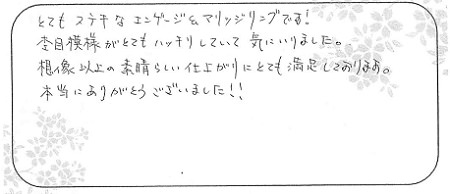 とても ステキな エンゲージ&マリッジリングです!
杢目模様がとてもハッキリしていて 気にいりました。
想像以上の素晴らしい仕上がりにとても満足しております。
本当にありがとうございました!!